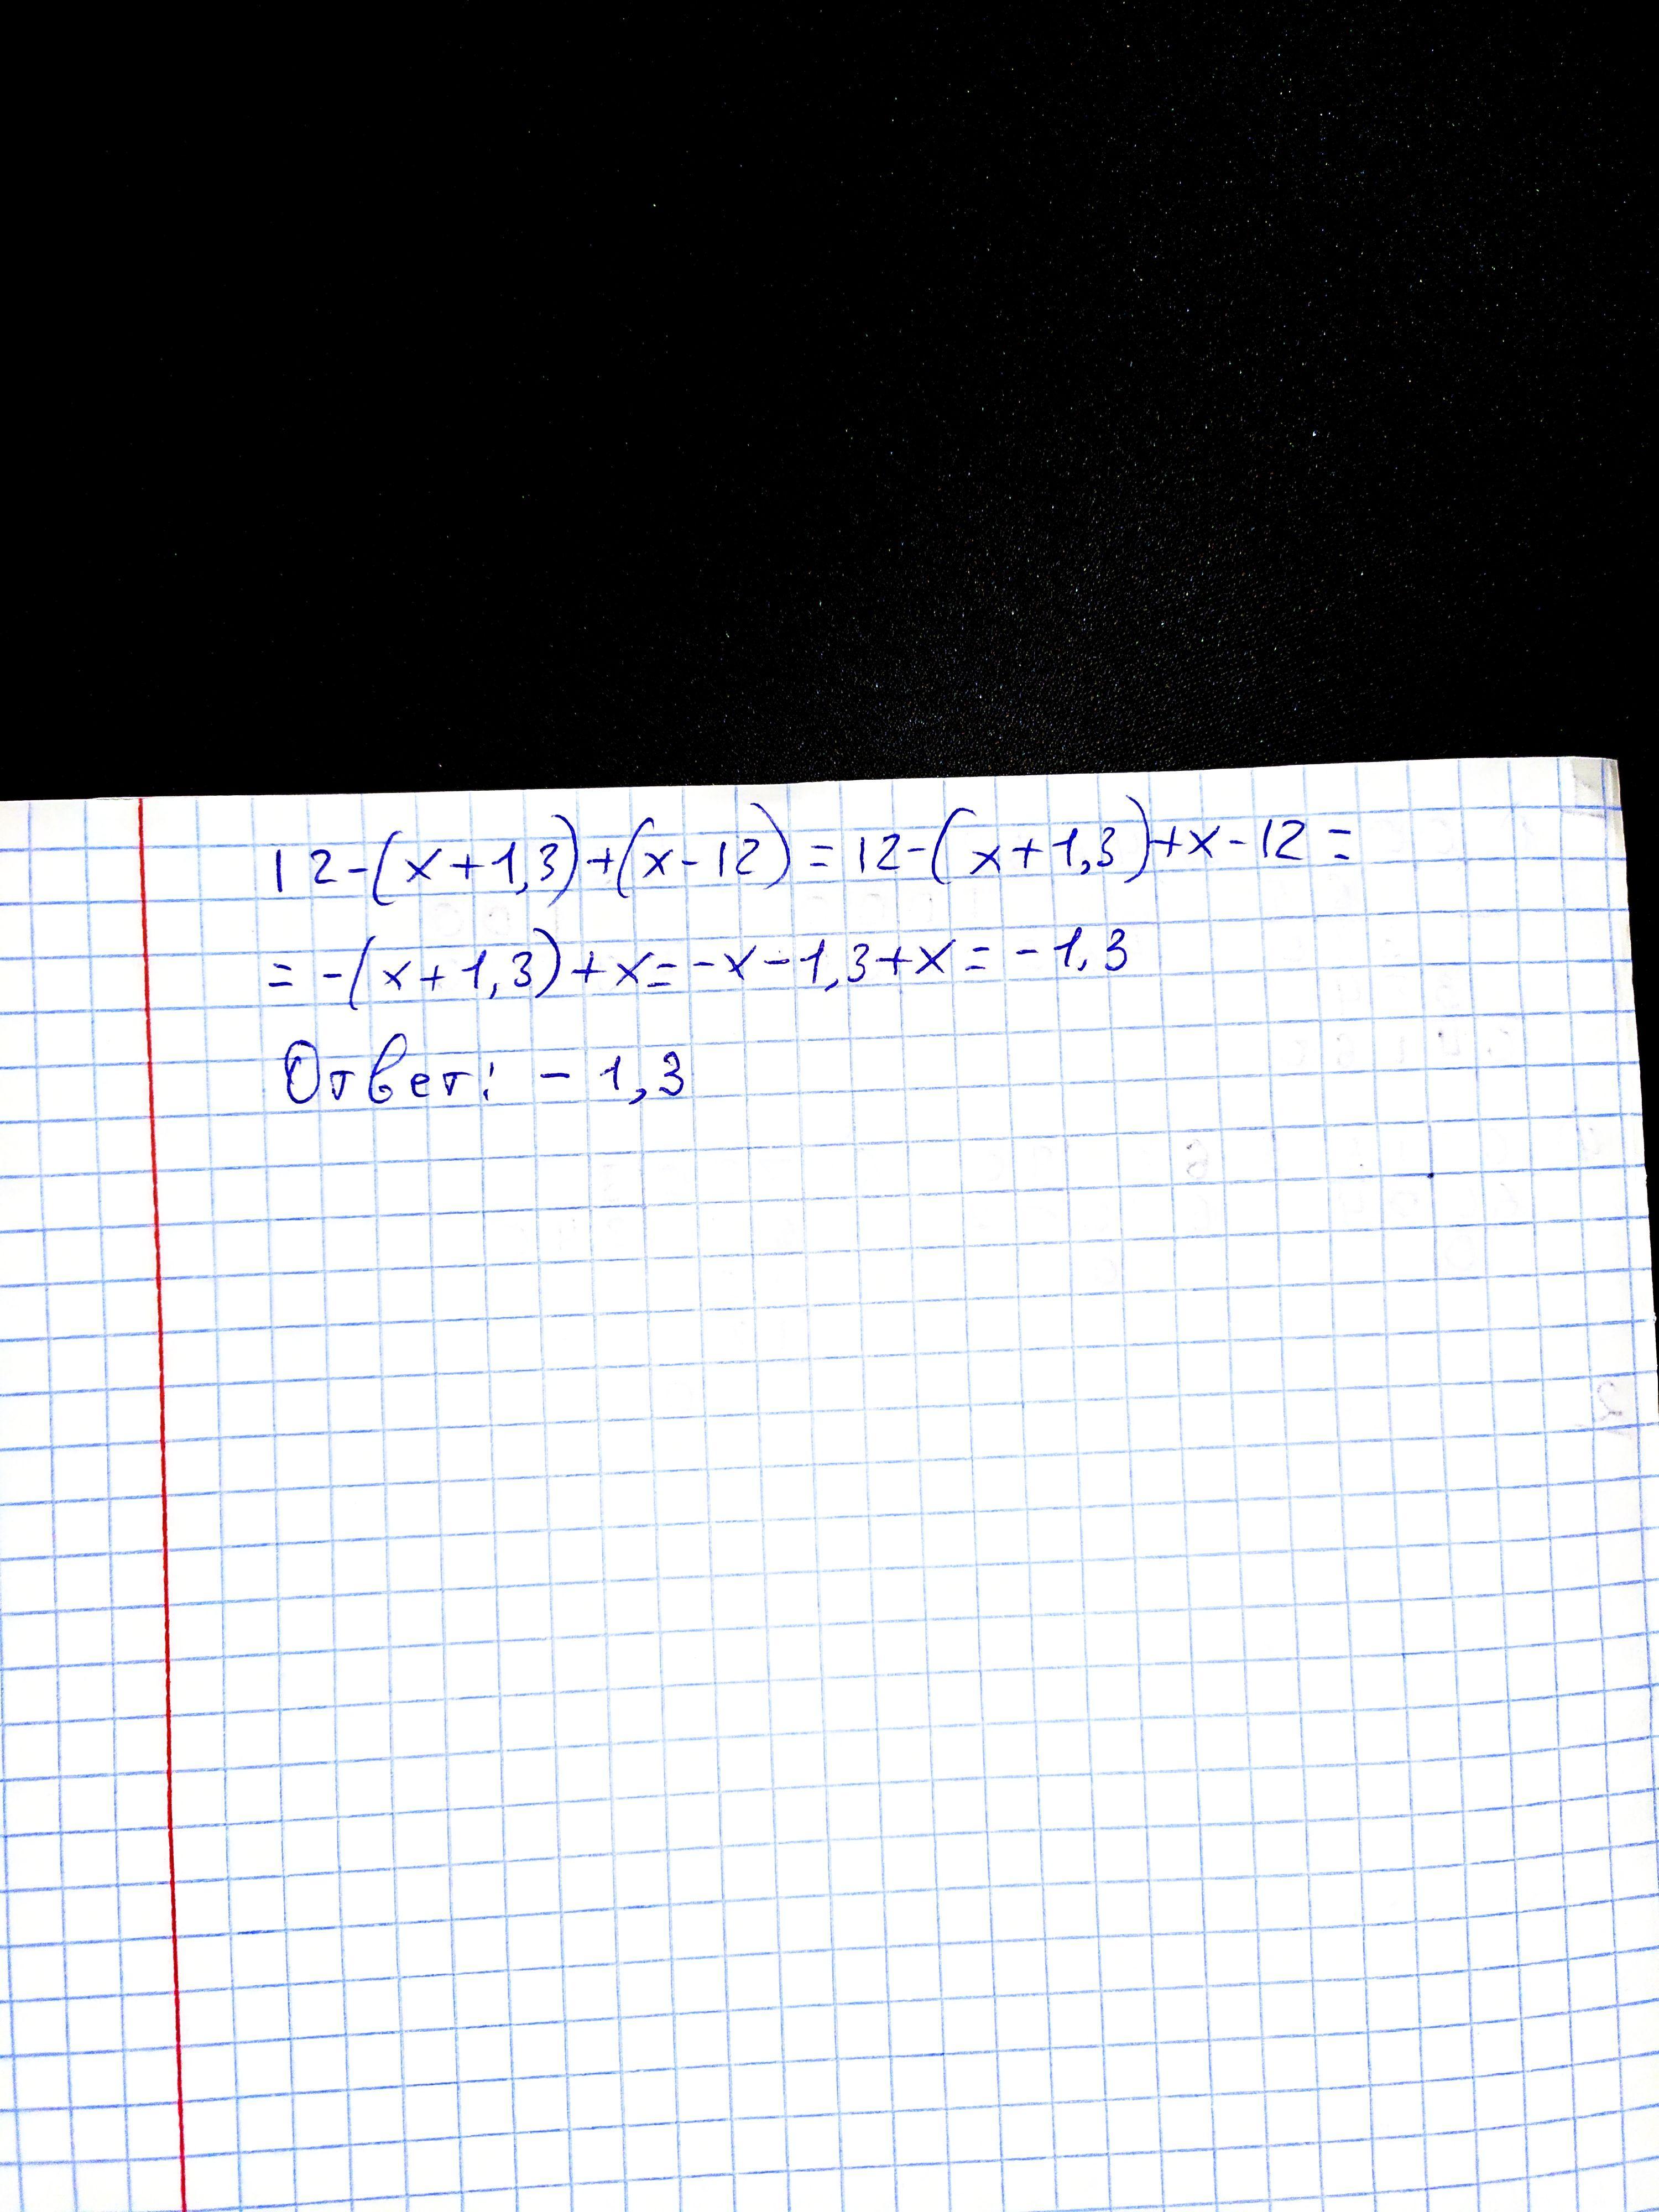 12-(x+1,3)+(x-12)=12-(x+1,3)+x-12=
=-(x+1,3)+x=-x-1,3+x=-1,3
Ответ: -1,3